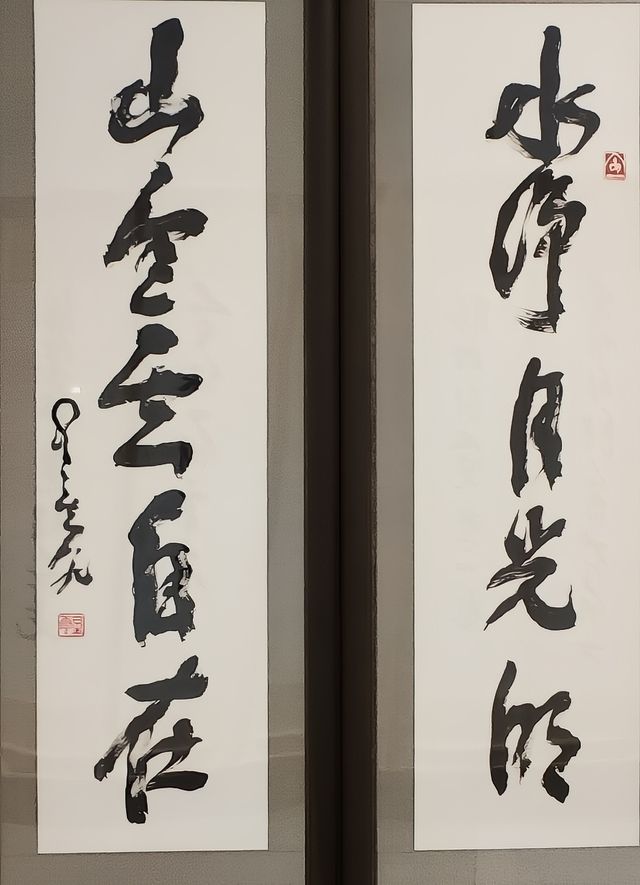 水淨月光明
山空云自在